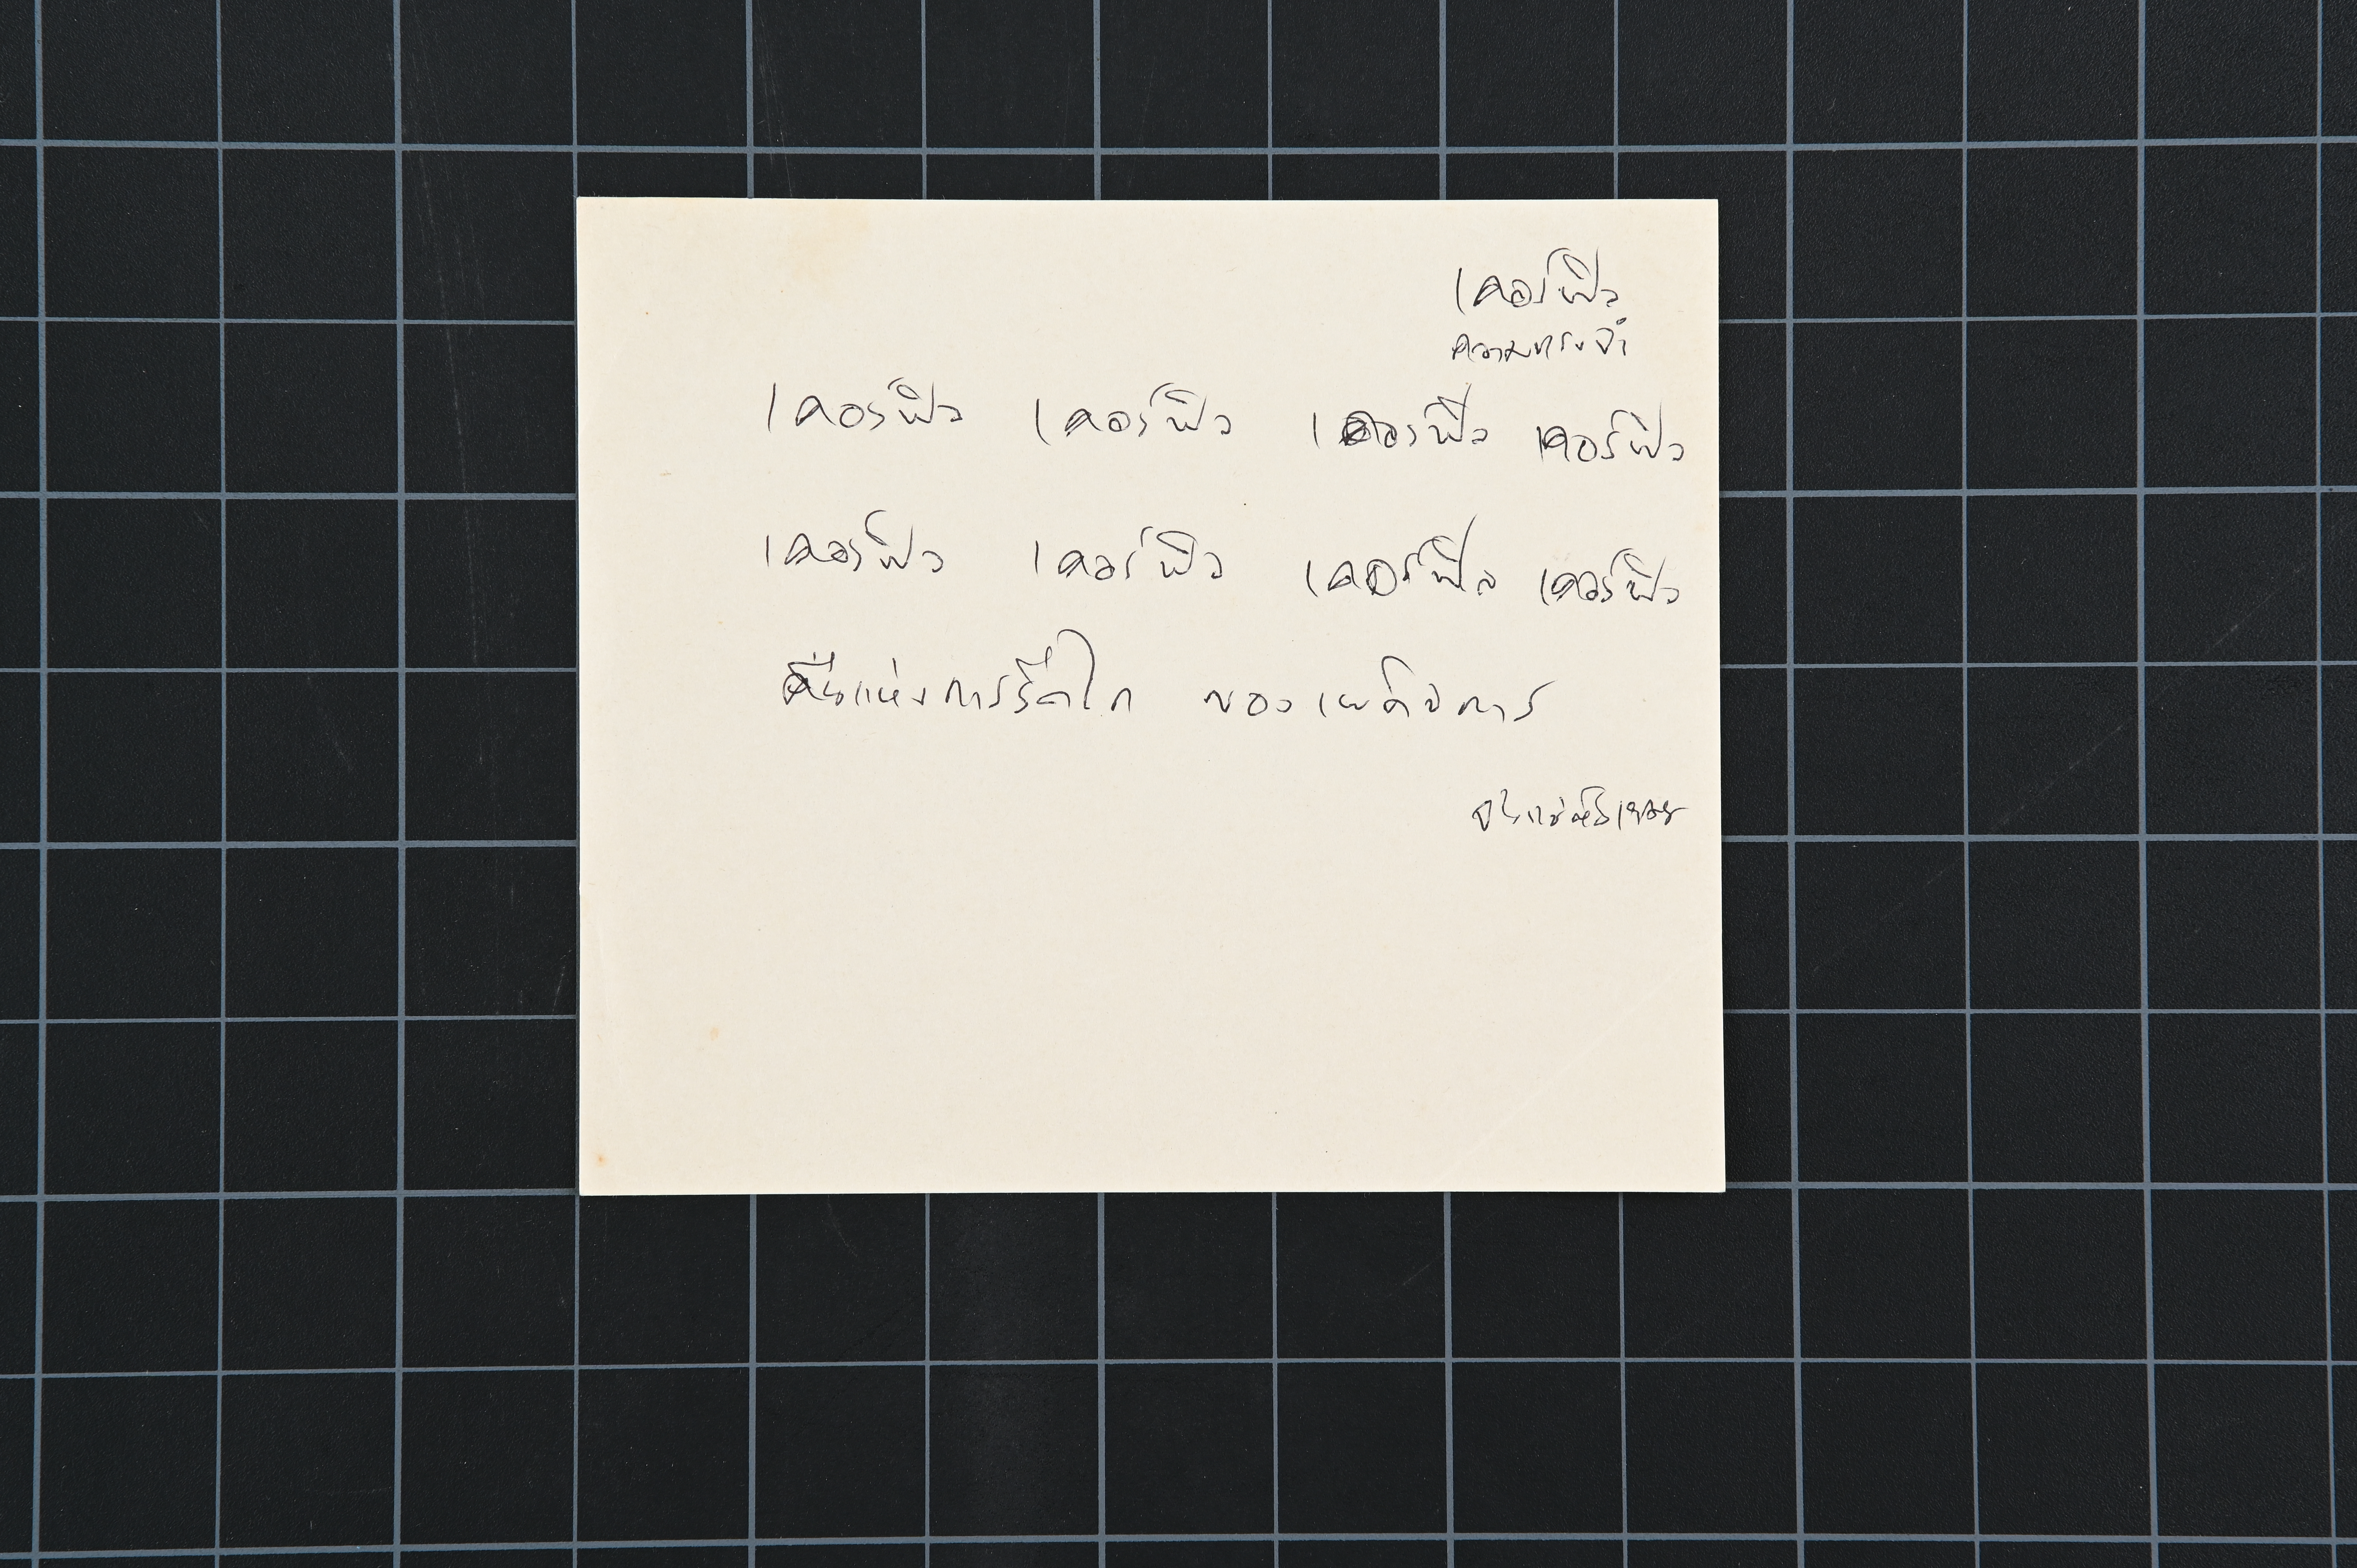 เคอร์ฟิว
ความทรงจำ
เคอร์ฟิว เคอร์ฟิว เคอร์ฟิว เคอร์ฟิว
เคอร์ฟิว เคอร์ฟิว เคอร์ฟิว เคอร์ฟิว
คืนแห่งการรีดไถ ของเผด็จการ